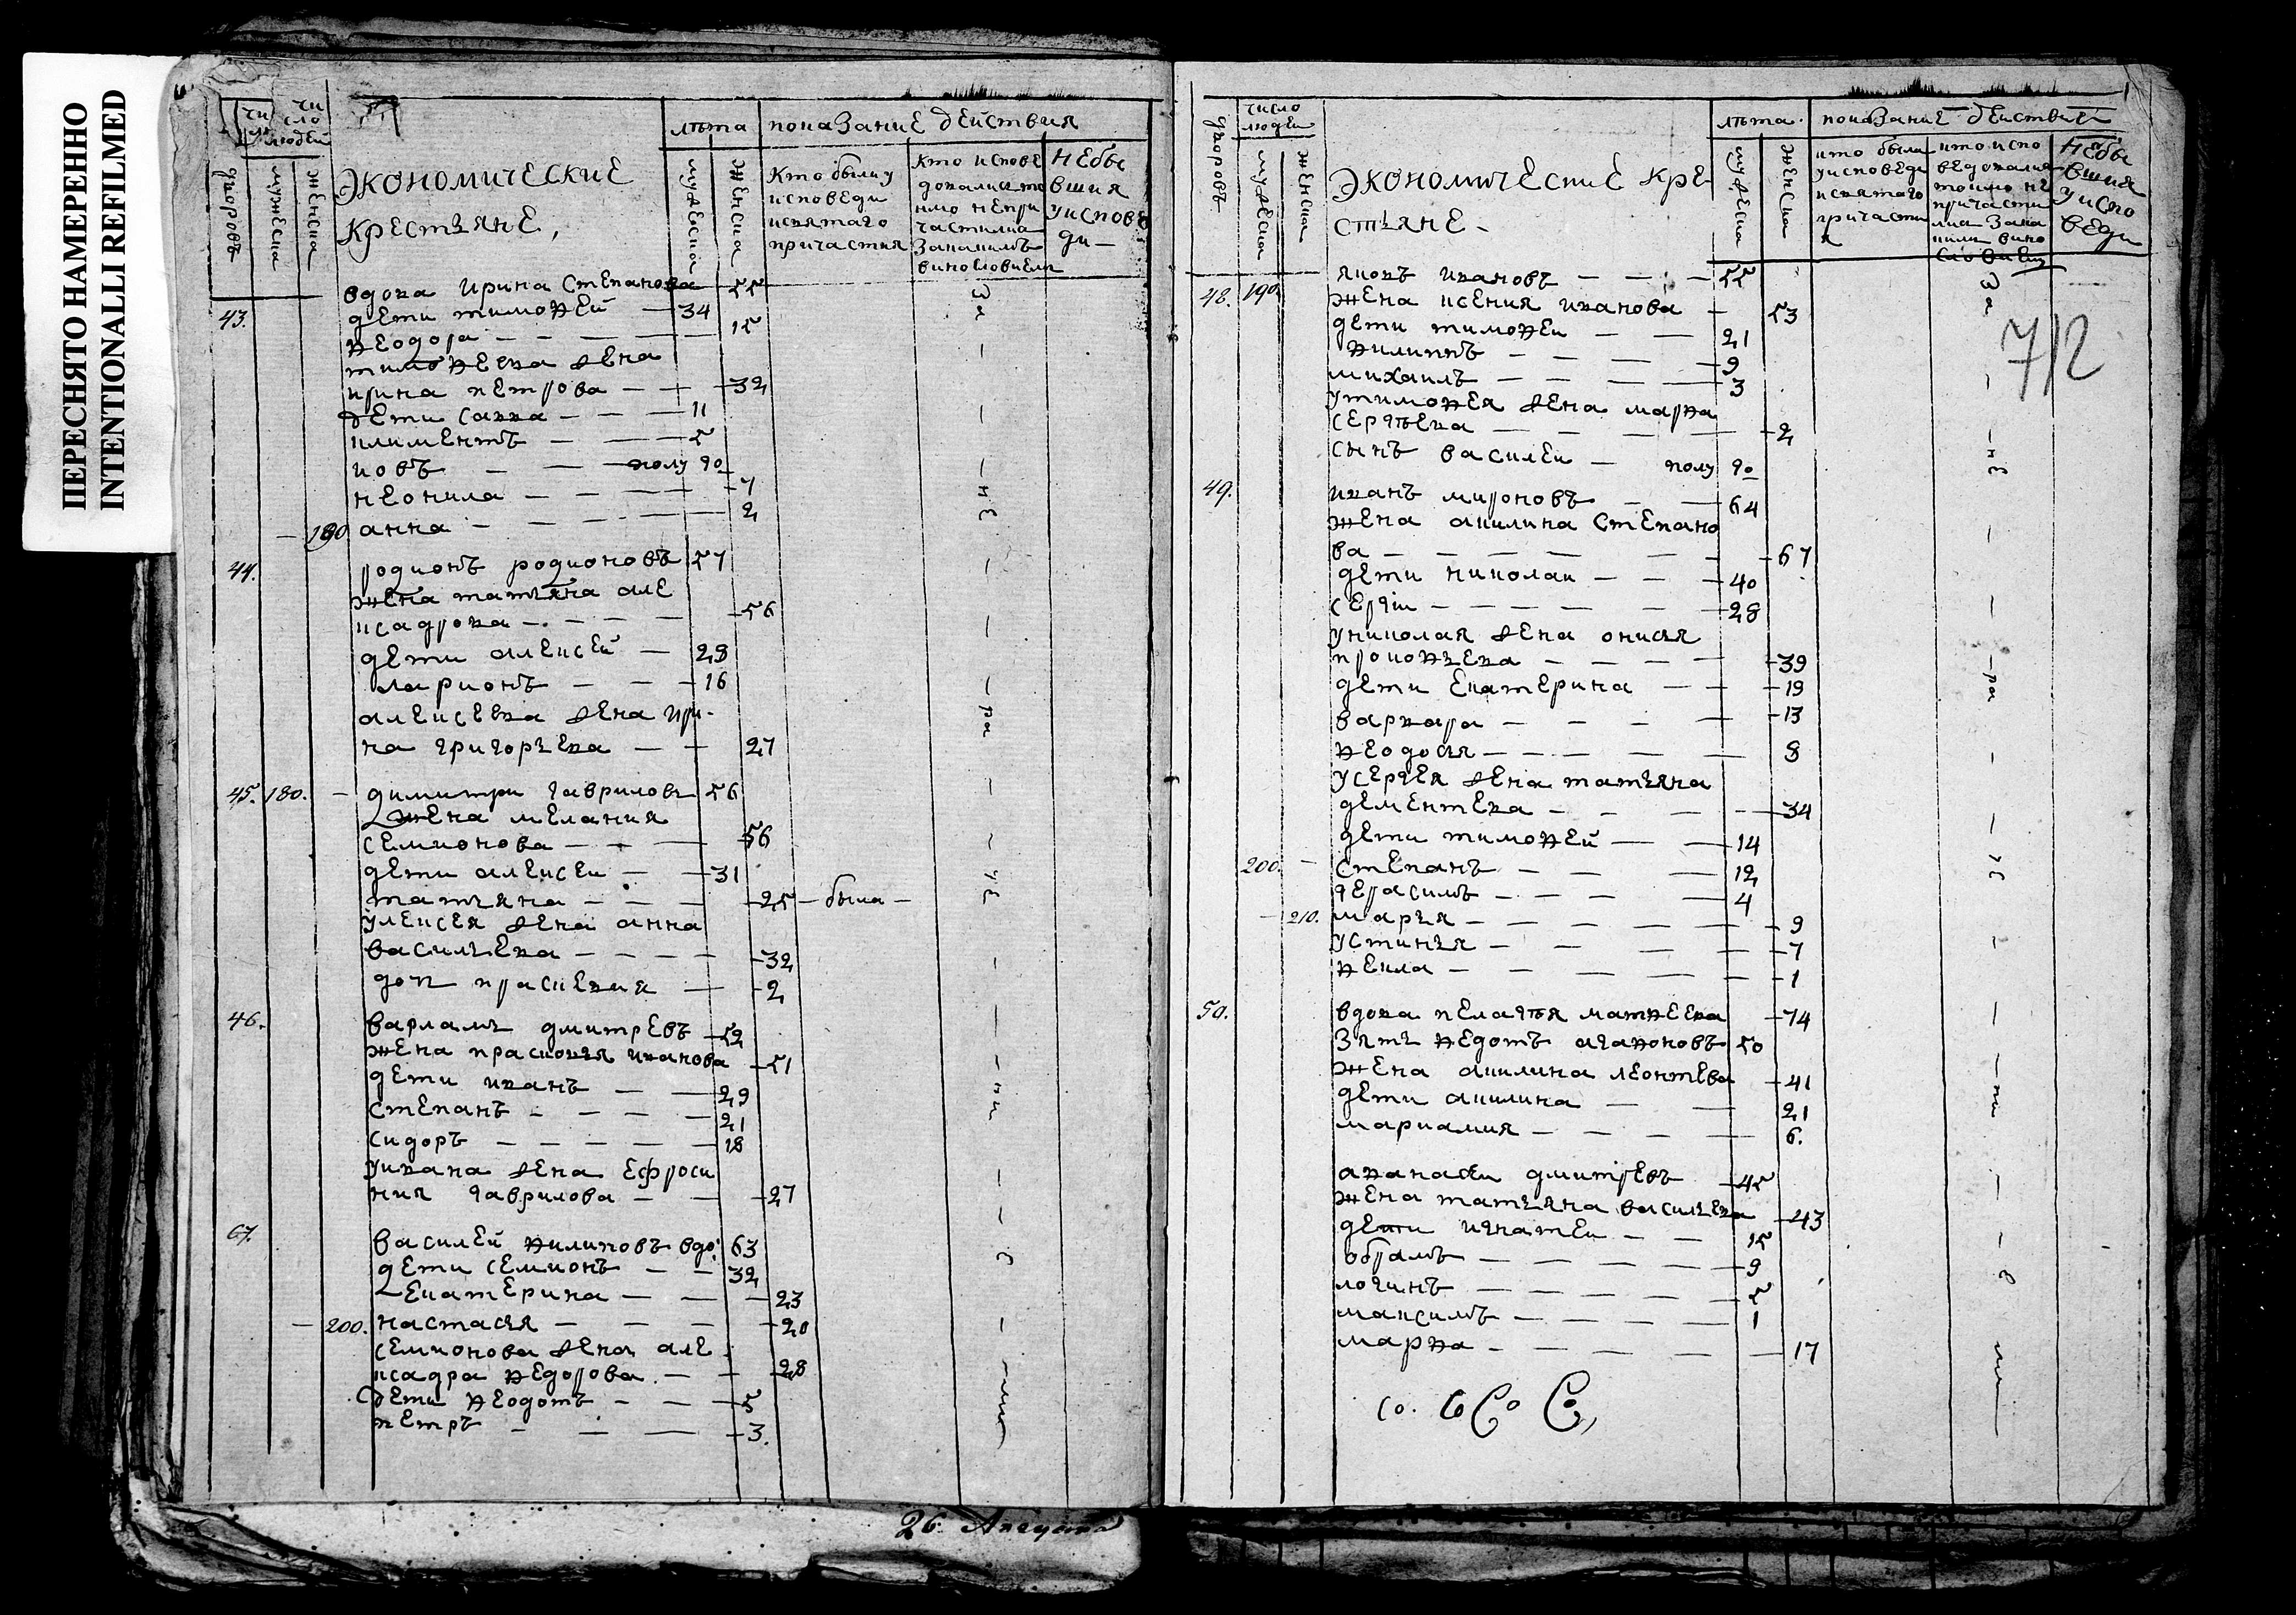 ПЕРЕСНЯТО НАМЕРЕННО
INTENTIONALLI REFILMED
число людей
дворовъ
мужеска
женска
Экономические
крестьяне,
лѣта
мужеска
женска
показание действия
кто был у исповеди и святаго причастия
кто исповедовался токмо не причастился за каким виносло­вием
не бывшия у исповеди
вдова Ирина Степанова — 55
43. дети тимоѳей — 34
ѳеодора — 15
тимоѳеева жена
ирина петрова — 32
дети савва — 11
климентъ — 5
иовъ — полу го
неонила — 7
190 анна — 2
44. родионъ родионовъ 57
жена татьяна але
ксадрова — 56
дети алексей — 29
ларионъ — 16
алексеева жена ири-
на григорьева — 27
45. 180. димитри гавриловъ 56
жена мелания
семионова — 56
дети алексеи — 31
татьяна — 25 — была —
у алексея жена анна
васильева — 32
доч праскевия — 2
46. варламъ дмитревъ — 52
жена прасковья иванова — 51
дети иванъ — 29
степанъ — 21
сидоръ — 18
у ивана жена Ефроси
ния гаврилова — 27
67. василей ѳилиповъ вдо: 63
дети семионъ — 32
Екатерина — 23
200. настасья — 20
семионова жена але
ксадра ѳедорова — 28
дети ѳеодотъ — 5
петръ — 3.
26 Августа
число людеи
дворовъ
мужеска
женска
Экономические кре-
стьяне -
лѣта
мужеска
женска
показание действий
кто были у исповеди и святаго причастия
кто исповедовалис токмо не причастилис за каким винословием
не бывшия у исповеди
712
яковъ ивановъ — 55
48. 190 жена ксения иванова — 53
дети тимоѳеи — 21
ѳилиппъ — 9
михаилъ — 3
у тимоѳея жена марѳа
сергѣева — 2
сынъ василеи — полу го
49. иванъ мироновъ — 64
жена акилина Степано
ва — 67
дети николаи — 40
сергiи — 28
у николая жена онисья
прокоѳьева — 39
дети Екатерина — 19
варвара — 13
ѳеодосья — 8
у сергея жена татьяна
дементева — 34
дети тимоѳей — 14
200. степанъ — 12
герасимъ — 4
210. марья — 9
устинья — 7
ѳекла — 1
50. вдова пелагѣя матѳеева — 74
зять ѳедотъ агаѳоновъ 50
жена акилина леонтева — 41
дети акилина — 21
мариамия — 6.
аѳанасеи дмитревъ — 45
жена татьяна васильева — 43
дети игнатеи — 15
обрамъ — 9
логинъ — 5
максимъ — 1
марѳа — 17